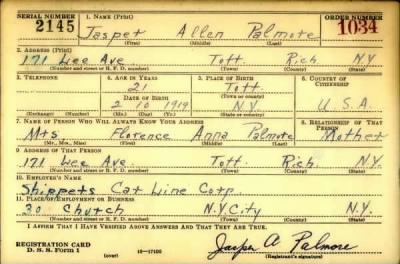 SERIAL NUMBER 1. NAME (Print) ORDER NUMBER
2145 Jasper Allen Palmore 1034
(First) (Middle) (Last)
2. ADDRESS (Print)
171 Lee Ave Tott Rich N.Y.
(Number and street or R. F. D. number) (Town) (County) (State)
3. TELEPHONE 4. AGE IN YEARS 5. PLACE OF BIRTH 6. COUNTRY OF CITIZENSHIP
21 Tott
DATE OF BIRTH (Town or county)
2 10 1919 N.Y. U.S.A.
(Exchange) (Number) (Mo.) (Day) (Yr.) (State or country)
7. NAME OF PERSON WHO WILL ALWAYS KNOW YOUR ADDRESS 8. RELATIONSHIP OF THAT PERSON
Mrs Florence Anna Palmore Mother
(Mr., Mrs., Miss) (First) (Middle) (Last)
9. ADDRESS OF THAT PERSON
171 Lee Ave Tott Rich. N.Y.
(Number and street or R. F. D. number) (Town) (County) (State)
10. EMPLOYER'S NAME
Shippers Car Line Corp.
11. PLACE OF EMPLOYMENT OR BUSINESS
30 Church N.Y. City N.Y.
(Number and street or R. F. D. number) (Town) (County) (State)
I AFFIRM THAT I HAVE VERIFIED ABOVE ANSWERS AND THAT THEY ARE TRUE.
REGISTRATION CARD Jasper A Palmore
D. S. S. FORM 1 (over) 16-17105 (Registrant's signature)